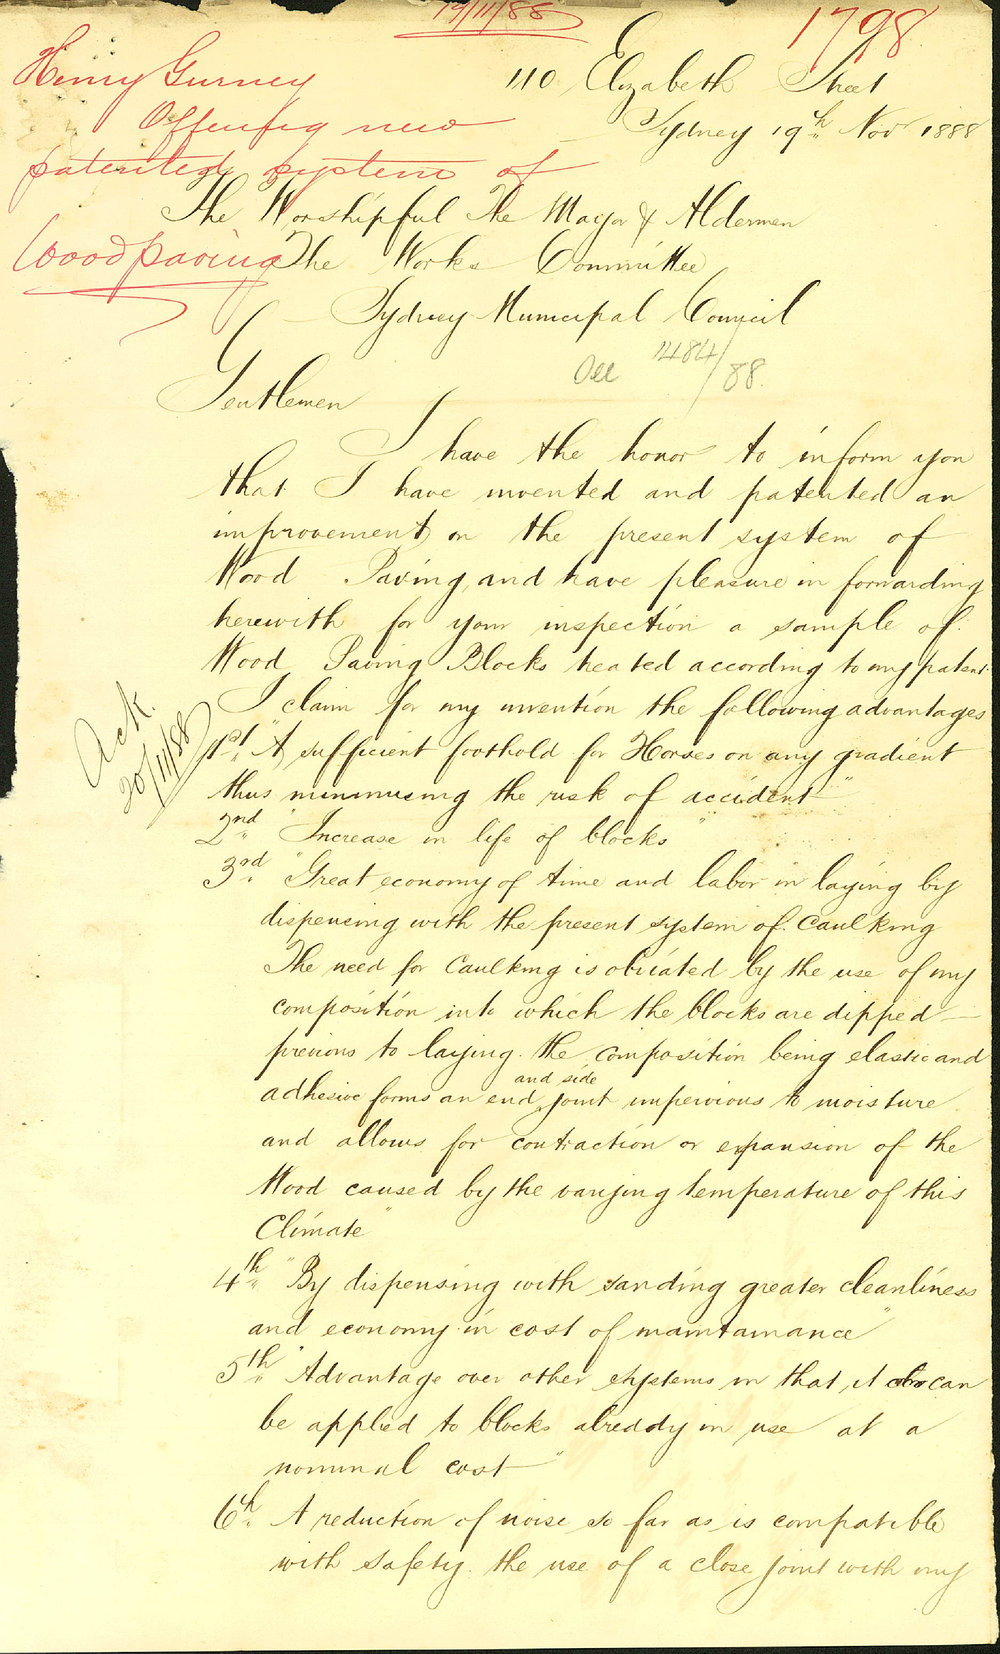 19/11/88
1798
Henry Gurney
Offering new
patented system of
Wood paving
110 Elizabeth Street
Sydney 19th Nov 1888
The Worshipful The Mayor & Aldermen
The Works Committee
Sydney Municipal Council
1484/88.
Gentlemen
I have the honor to inform you
that I have invented and patented an
improvement on the present system of
Wood Paving, and have pleasure in forwarding
herewith for your inspection a sample of
Wood Paving Blocks treated according to my patent
I claim for my invention the following advantages
Ack.
20/11/88
1st "A sufficient foothold for Horses on any gradient
thus minimising the risk of accident"
2nd "Increase in life of blocks"
3rd "Great economy of time and labor in laying by
dispensing with the present system of Caulking
The need for Caulking is obviated by the use of my
composition into which the blocks are dipped —
previous to laying. the composition being elastic and
adhesive forms an end and side joint impervious to moisture
and allows for contraction or expansion of the
Wood caused by the varying temperature of this
Climate"
4th "By dispensing with sanding greater cleanliness
and economy in cost of maintainance"
5th "Advantage over other systems in that it can
be applied to blocks already in use at a
nominal cost"
6th A reduction of noise so far as is compatible
with safety. the use of a close joint with my